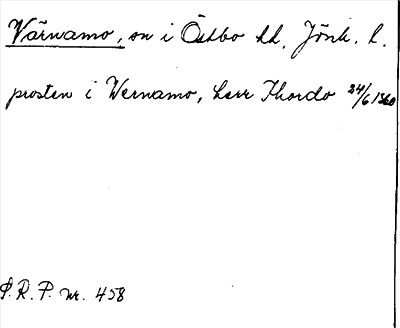 Värnamo, sn i Östbo hd. Jönk. l.
prosten i Wernamo, herr Thordo 24/6 1360
S.R.P. nr. 458